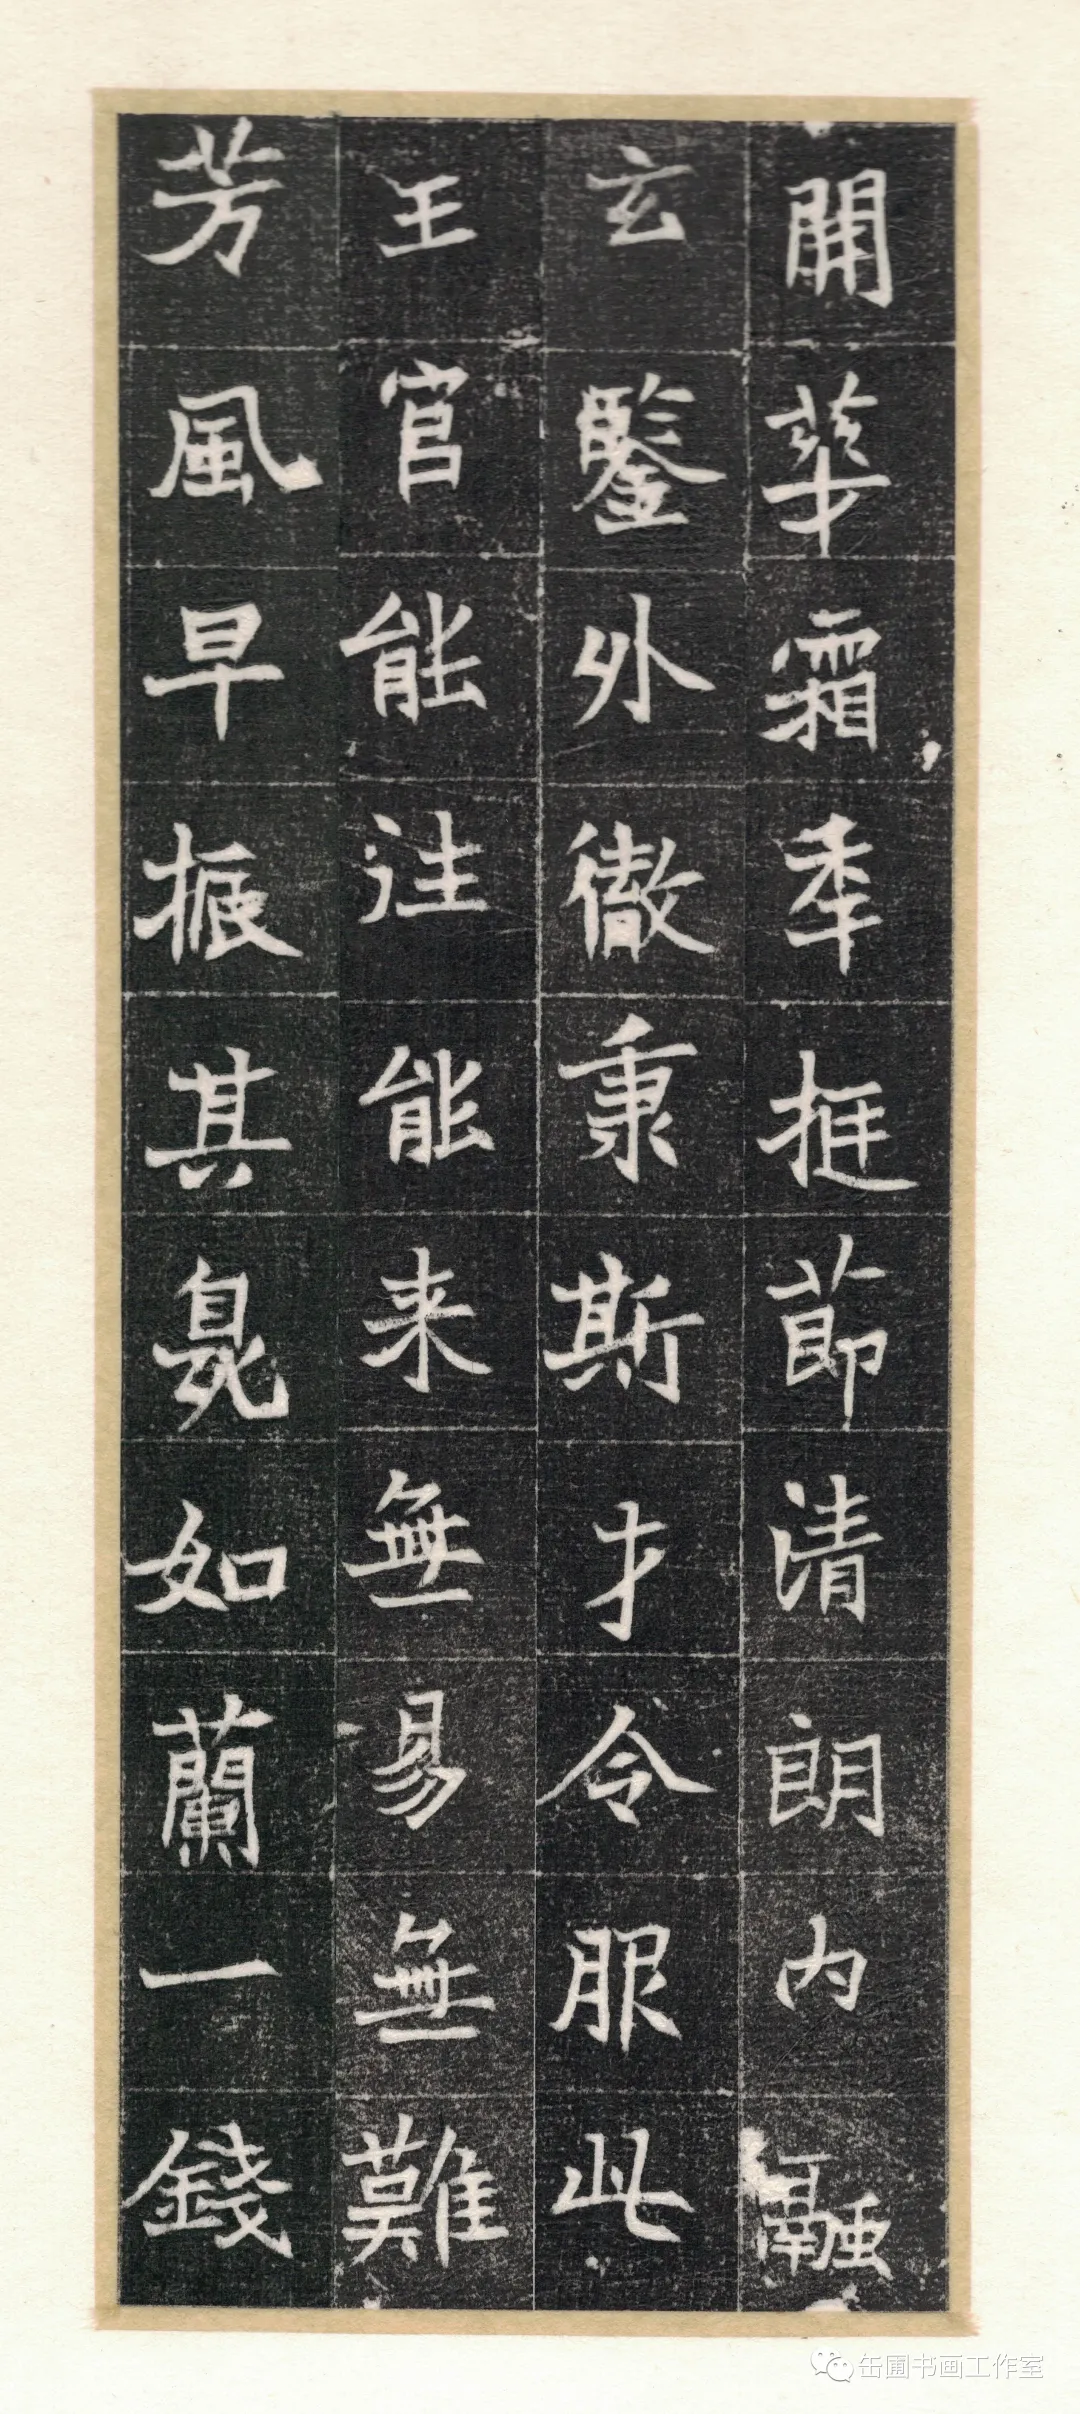 開華霜季挺莭清朗內融
玄鑒外徹秉斯才令服此
王官能往能来無易無難
芳風早振其臰如蘭一錢
缶圃书画工作室